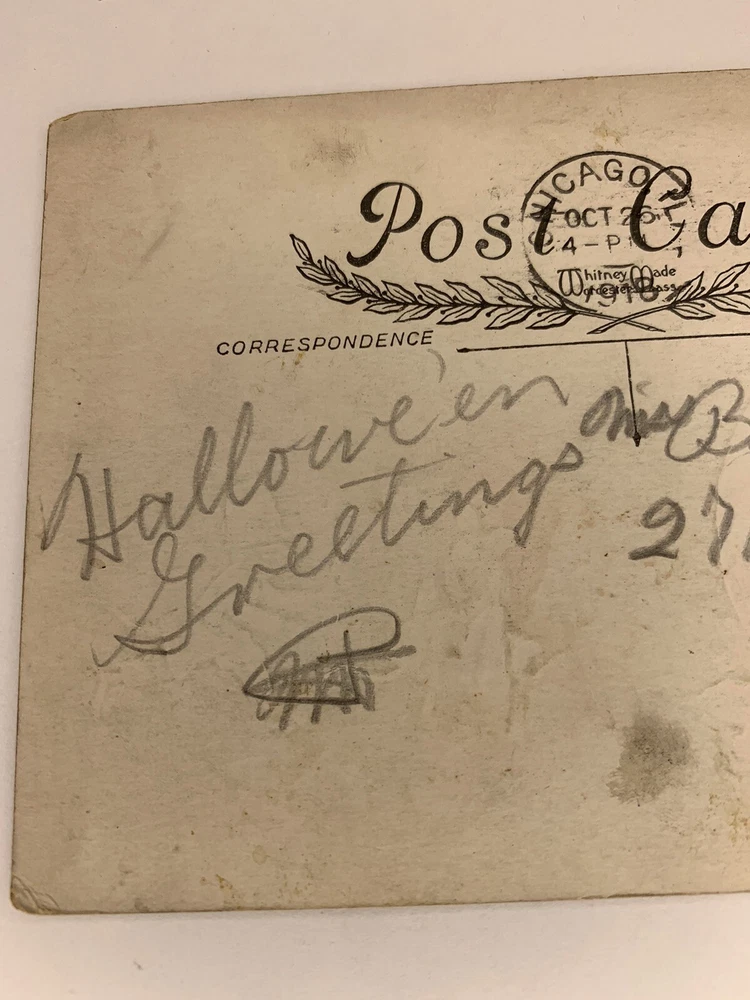 CHICAGO, ILL
OCT 26
4-PM
1916
Post Ca
Whitney Made
Worcester, Mass
CORRESPONDENCE
Hallowe'en
Greetings
Miss B
27